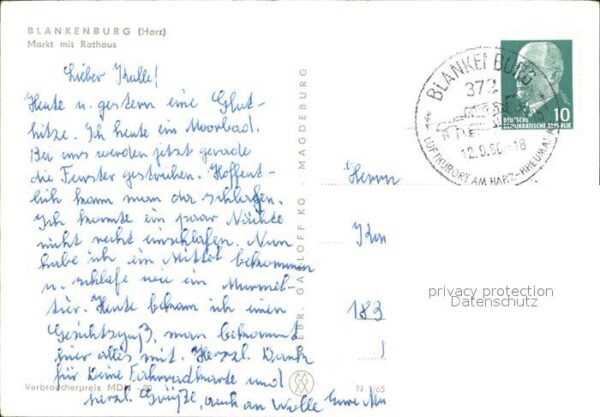 BLANKENBURG (Harz)
Markt mit Rathaus
Lieber Kalle!
Heute u. gestern eine Glut-
hitze. Ich heute ein Moorbad.
Bei uns werden jetzt gerade
die Fenster gestrichen. Hoffent-
lich kann man da schlafen.
Ich konnte ein paar Nächte
nicht recht einschlafen. Nun
habe ich ein Mittel bekommen
u. schlafe wie ein Murmel-
tier. Heute bekam ich einen
Gesichtsguß, man bekommt
hier alles mit. Herzl. Dank
für Deine Fahrradkarte und
herzl. Grüße, auch an
Verbraucherpreis MDN
GEBR. GARLOFF KG · MAGDEBURG
BLANKENBURG
372
12.9.66-18
LUFTKURORT AM HARZ
10
DEUTSCHE
DEMOKRATISCHE REPUBLIK
Herrn
183
privacy protection
Datenschutz